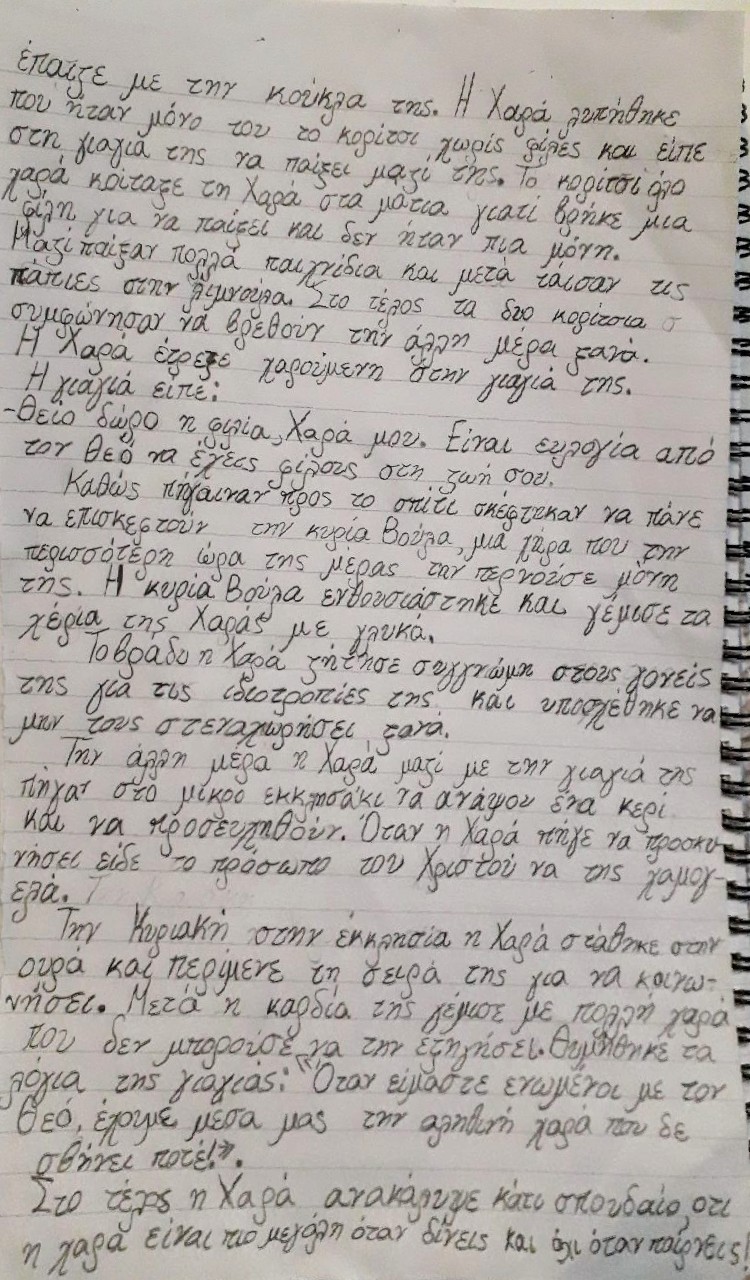 έπαιζε με την κούκλα της. Η Χαρά λυπήθηκε
που ήταν μόνο του το κορίτσι χωρίς φίλες και είπε
στη γιαγιά της να παίξει μαζί της. Το κορίτσι όλο
χαρά κοίταξε τη Χαρά στα μάτια γιατί βρήκε μια
φίλη για να παίξει και δεν ήταν πια μόνη.
Μαζί παίξαν πολλά παιχνίδια και μετά τάισαν τις
πάπιες στην λιμνούλα. Στο τέλος τα δυο κορίτσια
συμφώνησαν να βρεθούν την άλλη μέρα ξανά.
Η Χαρά έτρεξε χαρούμενη στην γιαγιά της.
Η γιαγιά είπε:
-Θείο δώρο η φιλία, Χαρά μου. Είναι ευλογία από
τον Θεό να έχεις φίλους στη ζωή σου.
Καθώς πήγαιναν προς το σπίτι σκέφτηκαν να πάνε
να επισκεφτούν την κυρία Βούλα, μια χήρα που την
περισσότερη ώρα της μέρας την περνούσε μόνη
της. Η κυρία Βούλα ενθουσιάστηκε και γέμισε τα
χέρια της Χαράς με γλυκά.
Το βράδυ η Χαρά ζήτησε συγγνώμη στους γονείς
της για τις ιδιοτροπίες της και υποσχέθηκε να
μην τους στεναχωρήσει ξανά.
Την άλλη μέρα η Χαρά μαζί με την γιαγιά της
πήγαν στο μικρό εκκλησάκι να ανάψου ένα κερί
και να προσευχηθούν. Όταν η Χαρά πήγε να προσκυ-
νήσει είδε το πρόσωπο του Χριστού να της χαμογ-
ελά.
Την Κυριακή στην εκκλησία η Χαρά στάθηκε στην
ουρά και περίμενε τη σειρά της για να κοινω-
νήσει. Μετά η καρδία της γέμισε με πολλή χαρά
που δεν μπορούσε να την εξηγήσει. Θυμήθηκε τα
λόγια της γιαγιάς: "Όταν είμαστε ενωμένοι με τον
Θεό, έχουμε μέσα μας την αληθινή χαρά που δε
σβήνει ποτέ!».
Στο τέλος η Χαρά ανακάλυψε κάτι σπουδαίο, οτι
η χαρά είναι πιο μεγάλη όταν δίνεις και όχι όταν παίρνεις!